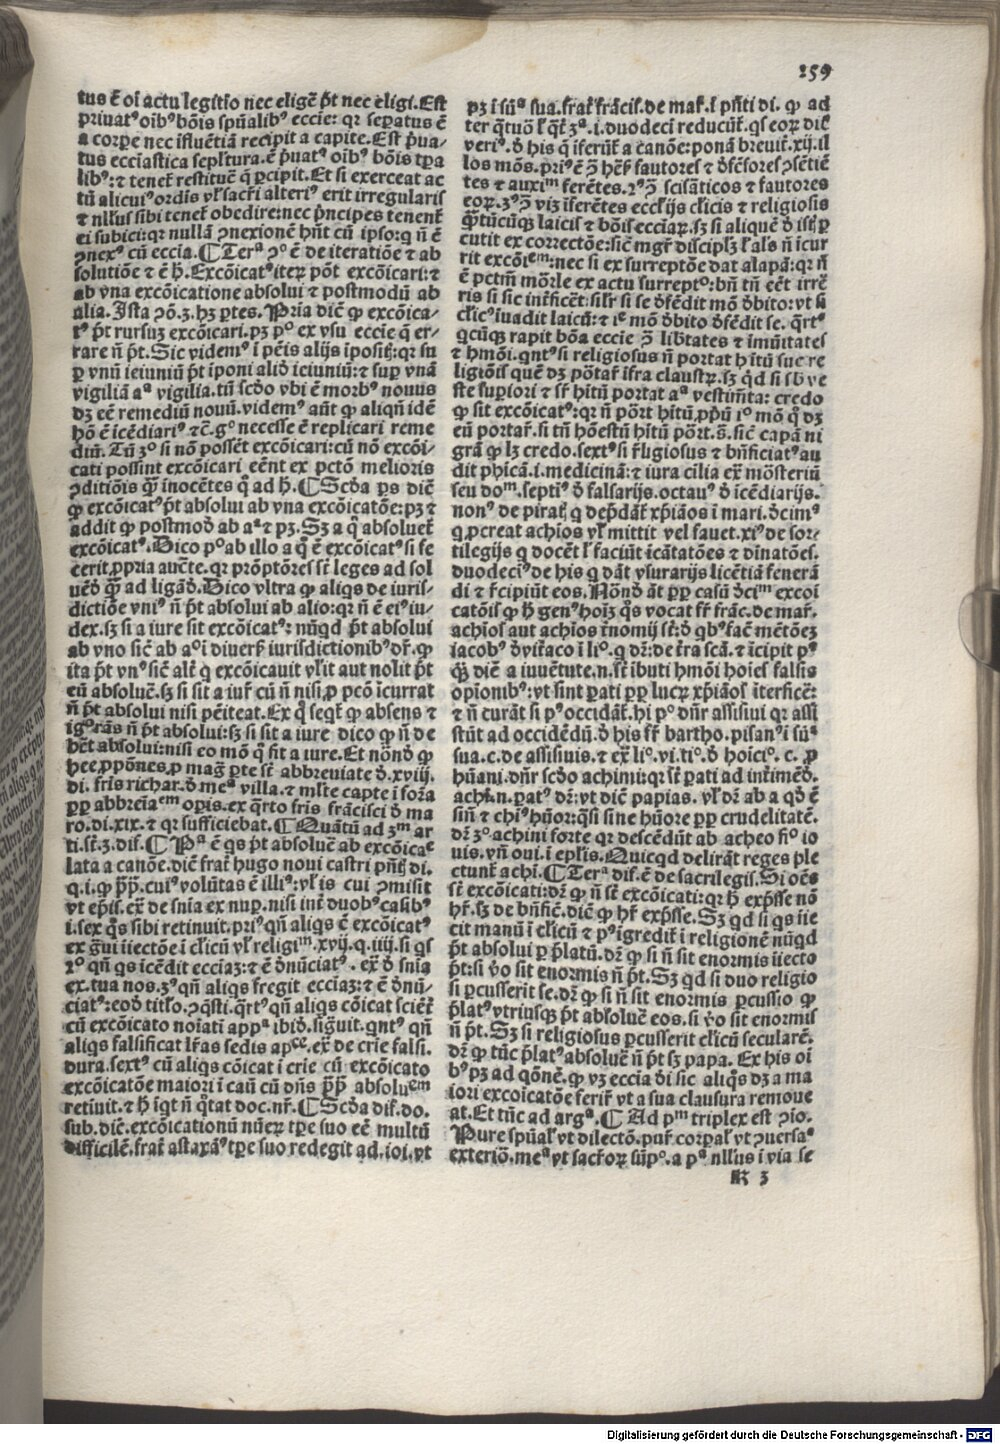 259
tus ē oī actu legitīo nec eligē p̄t nec eligi. Est
priuatꝰ oībꝰ bōis spūalibꝰ eccīe: qr sepatus ē
a corpe nec īfluētiā recipit a capite. Est p̄ua/
tus ecclīastica sepl̄tura. ē p̄uatꝰ oībꝰ bōis tpa
libꝰ: ⁊ tenet restituē q̄ pcipit. Et si exerceat ac
tū alicuiꝰ ordīs vl̓ sacri alteriꝰ erit irregularis
⁊ nllus sibi tenet obedire: nec p̄ncipes tenent
ei subici: qr nullā ꝯnexionē hn̄t cū ipso: q n̄ ē
ꝯnexꝰ cū eccīa. ¶ Terᵃ ꝯᵒ ē de iteratiōe ⁊ ab
solutiōe ⁊ ē h̄. Excōicatꝰ iterꝫ pōt excōicari: ⁊
ab vna excōicatione absolui ⁊ postmodū ab
alia. Ista ꝯō. 3. hꝫ ptes. Pria diē ꝙ excōica-
tꝰ p̄t rursuꝫ excōicari. pꝫ pᵒ ex vsu eccīe q̄ er-
rare n̄ p̄t. Sic videmꝰ ī pēis alijs īpositꝭ: qr su
ꝑ vnū ieiuniū p̄t īponi aliō ieiuniū: ⁊ suꝑ vnā
vigiliā aᵃ vigilia. tū scdo vbi ē morbꝰ nouus
dꝫ eē remediū nouū. videmꝰ aūt ꝙ aliqn̄ idē
hō ē īcēdiariꝰ ⁊c̄. gᵒ necesse ē replicari reme
diū. Tū 3ᵒ si nō possēt excōicari: cū nō excōi-
cati possint excōicari eēnt ex pctō melioris
ꝯditiōis q̄ꝫ īnocētes q̄ ad h̄. ¶ Scda ps diē
ꝙ excōicatꝰ p̄t absolui ab vna excōicatōe: pꝫ ⁊
addit ꝙ postmod̄ ab aᵃ ⁊ pꝫ. Sꝫ a q̄ absoluet
excōicatꝰ. Dico pᵒ ab illo a q̄ ē excōicatꝰ si se
cerit ꝓpria aucte. qr prōptōres st̄ leges ad sol
uēd̄ q̄ꝫ ad ligād̄. Dico vltra ꝙ aliqs de iuris-
dictiōe vniꝰ n̄ p̄t absolui ab alio: qr n̄ ē eiꝰ iu-
dex. sꝫ si a iure sit excōicatꝰ: nūqd p̄t absolui
ab vno sic ab aᵒ ī diuers iurisdictionibꝰ dr̄. ꝙ
ita p̄t vnꝰ sic alt q excōicauit vl̓ it aut nolit p̄t
eū absoluē. sꝫ si sit a iur cū n̄ nisi ꝓ pcō īcurrat
n̄ p̄t absolui nisi pēiteat. Ex q̄ seqt ꝙ absens ⁊
igⁿorās n̄ p̄t absolui: sꝫ si sit a iure dico ꝙ n̄ de
bēt absolui: nisi eo mō q̄ sit a iure. Et nōnd̄ ꝙ
hee ꝓpōnes ꝓ mag pte st̄ abbreuiate d̄. xviij.
di. fris richar. d̄ meᵃ villa. ⁊ mlte capte ī forā
ꝑ abbrēiaᵉᵐ opis. ex q̄rto fris frācisci d̄ ma
ro. di. xix. ⁊ qr sufficiebat. ¶ Quātū ad 3ᵐ ar
ti. st̄. 3. dif. ¶ Pᵃ ē qs p̄t absoluē ab excōicaᵉ
lata a canōe. diē frat hugo noui castri p̄ntꝭ di.
q. i. ꝙ p̄p̄. cuiꝰ volūtas ē illiꝰ: vl̓ is cui ꝯmisit
vt ep̄is. ex̄ de snīa ex nup. nisi int duobꝰ casibꝰ
i. sex q̄s sibi retinuit. priꝰ qn̄ aliqs ē excōicatꝰ
ex ḡui īiectōe ī clicū vl̓ religiᵐ. xvij. q. iiij. si qs
2ᵒ qn̄ qs īcēdit eccīaꝫ: ⁊ ē d̄nūciatꝰ. ex̄ d̄ snīa
ex. tua nos. 3ꝰ qn̄ aliqs fregit eccīaꝫ: ⁊ ē d̄nū-
ciatꝰ: eod̄ titlo. ꝯq̄sti. q̄rtꝰ qn̄ aliqs cōicat sciēt
cū excōicato noīati appᵃ ibid̄. siḡuit. qntꝰ qn̄
aliqs falsificat lr̄as sedis apᶜᵉ. ex̄ de crie falsi.
dura. sextꝰ cū aliqs cōicat ī crie cū excōicato
excōicatōe maiori ī caū cū dn̄s p̄p̄ absoluᵉᵐ
retinuit. ⁊ h̄ īgt n̄ q̄tat doc. nr̄. ¶ Scd̄a dif. do.
sub. diē. excōicationū nūeꝝ tpe suo eē multū
difficilē. frat astaxāꝰ tpe suo redegit ad. ioi. vt
pꝫ ī sūᵃ sua. frat frācis. de mar. ī pn̄ti di. ꝙ ad
ter q̄tuō l q̄t 3ᵃ. i. duodecī reducūt. qs eoꝝ dil
veriꝰ. d̄ his q īferūt a canōe: ponā breuit. xij. il
los mōs. priꝰ ē ꝯ̄ hēs fautores ⁊ d̄fēsores ꝯsētiē
tes ⁊ auxiᵐ ferētes. 2ꝰ ꝯ̄ scisāticos ⁊ fautores
eoꝝ. 3ꝰ ꝯ̄ viꝫ īferētes eccl̄ijs cl̄icis ⁊ religiosis
q̄tūcūqꝫ laicis ⁊ bōis eccīaꝝ. sꝫ si aliquē d̄ istꝭ ꝑ
cutit ex correctōe: sic mgr discipls l als n̄ īcur
rit excōiᵉᵐ: nec si ex surreptōe dat alapā: qr n̄
ē pctm̄ mōrle ex actu surreptᵒ: bn̄ tn̄ eēt irrē
ris si sic int̄ficēt: sil̄r si se d̄fēdit mō d̄bito: vt si
clicꝰ īuadit laicū: ⁊ iᵉ mō d̄bito d̄fēdit se. q̄rtꝰ
qcūqꝫ rapit bōa eccīe ꝯ̄ lib̄tates ⁊ imūitates
⁊ hmōi. qntꝰ si religiosus n̄ portat hītū sue re
ligiōis quē dꝫ pōtar īfra claustꝝ. sꝫ qd si sb̄ ve
ste supiori ⁊ sr̄ hītū portat aᵃ vestimta: credo
ꝙ sit excōicatꝰ: qr n̄ pōrt hītū ꝓpriū iᵒ mō q̄ dꝫ
eū portar. si tn̄ hōestū hītū pōrt. s̄. sic capā ni
grā ꝙ lꝫ credo. sextꝰ si r̄ligiosus ⁊ bn̄ficiatꝰ au
dit phicā. i. medicinā: ⁊ iura cilia ex̄ mōsteriū
seu doᵐ. septiꝰ d̄ falsarijs. octauꝰ d̄ īcēdiarijs.
nonꝰ de piratꝭ q dep̄dāt xp̄iāos ī mari. d̄cimꝰ
q ꝓcreat achios vl̓ mittit vel fauet. xiꝰ de sor-
tilegijs q docēt l faciūt īcātatōes ⁊ dīnatōes.
duodeciꝰ de his q dāt vsurarijs licētiā fenerā
di ⁊ r̄cipiūt eos. Nōnd̄ āt ꝑp casū d̄ciᵐ excoī
catōis ꝙ h̄ genꝰ hoīꝫ q̄s vocat fr̄ frāc. de mar.
achios aut achios t̄nomij st̄: d̄ qbꝰ fac mētōeꝫ
iacobꝰ d̄ vitaco ī liᵒ. q dr̄: de t̄ra scā. ⁊ īcipit pᵒ
q̄ꝫ diē a iuuētute. n. st̄ ībuti hmōi hoīes falsis
opīonibꝰ: vt sint pati ꝑp lucꝝ xp̄iāos īterficē:
⁊ n̄ curāt si pᵒ occidāt. hi pᵒ dn̄r assisiui qr assi
stūt ad occidēdū. d̄ his fr̄ bartho. pisanᵒ ī sūᵃ
sua. c. de assisiuis. ⁊ ex̄ liᵒ. vi. tiᵒ. d̄ hoicᵒ. c. ꝓ
hūani. dn̄r scdo achimi: qr st̄ pati ad int̄imēd̄.
achi. n. patꝰ dr̄: vt diē papias. vl̓ dr̄ ab a qd̄ ē
sin̄ ⁊ chiꝰ hūor: q̄si sine hūore pp crudelitatē.
dr̄ 3ᵒ achini forte qr descēdūt ab acheo fiᵒ io
uis. vn̄ oui. ī epl̄is. Quicqd delirāt reges ple
ctunt achi. ¶ Terᵃ dif. ē de sacrilegis. Si oēs
st̄ excōicati: dr̄ ꝙ n̄ st̄ excōicati: qr h̄ exp̄sse nō
hr̄. sꝫ de bn̄fic. diē ꝙ hr̄ exp̄sse. Sꝫ qd si qs īie
cit manū ī clicū ⁊ pᵒ īgredit ī religionē nūqd
p̄t absolui ꝑ p̄latū. dr̄ ꝙ si n̄ sit enormis īiecto
p̄t: si v̄o sit enormis n̄ p̄t. Sꝫ qd si duo religio
si pcusserit se. dr̄ ꝙ si n̄ sit enormis pcussio ꝙ
p̄latꝰ vtriusqꝫ p̄t absoluē eos. si v̄o sit enormis
n̄ p̄t. Sꝫ si religiosus pcusserit clicū secularē.
dr̄ ꝙ tūc p̄latꝰ absoluē n̄ p̄t sꝫ papa. Ex his oī
bꝰ pꝫ ad qōnē. ꝙ vꝫ eccīa d̄i sic aliq̄s dꝫ a ma
iori excoīcatōe ferir vt a sua clausura remoue
at. Et tūc ad argᵃ. ¶ Ad pᵐ triplex est ꝯio.
Pure spūal vt dilectō. pur corpal vt ꝯuersaᵒ
exteriō. meᵃ vt sacroꝝ sūpᵒ. a pᵃ nllus ī via se
K 3
Digitalisierung gefördert durch die Deutsche Forschungsgemeinschaft - DFG